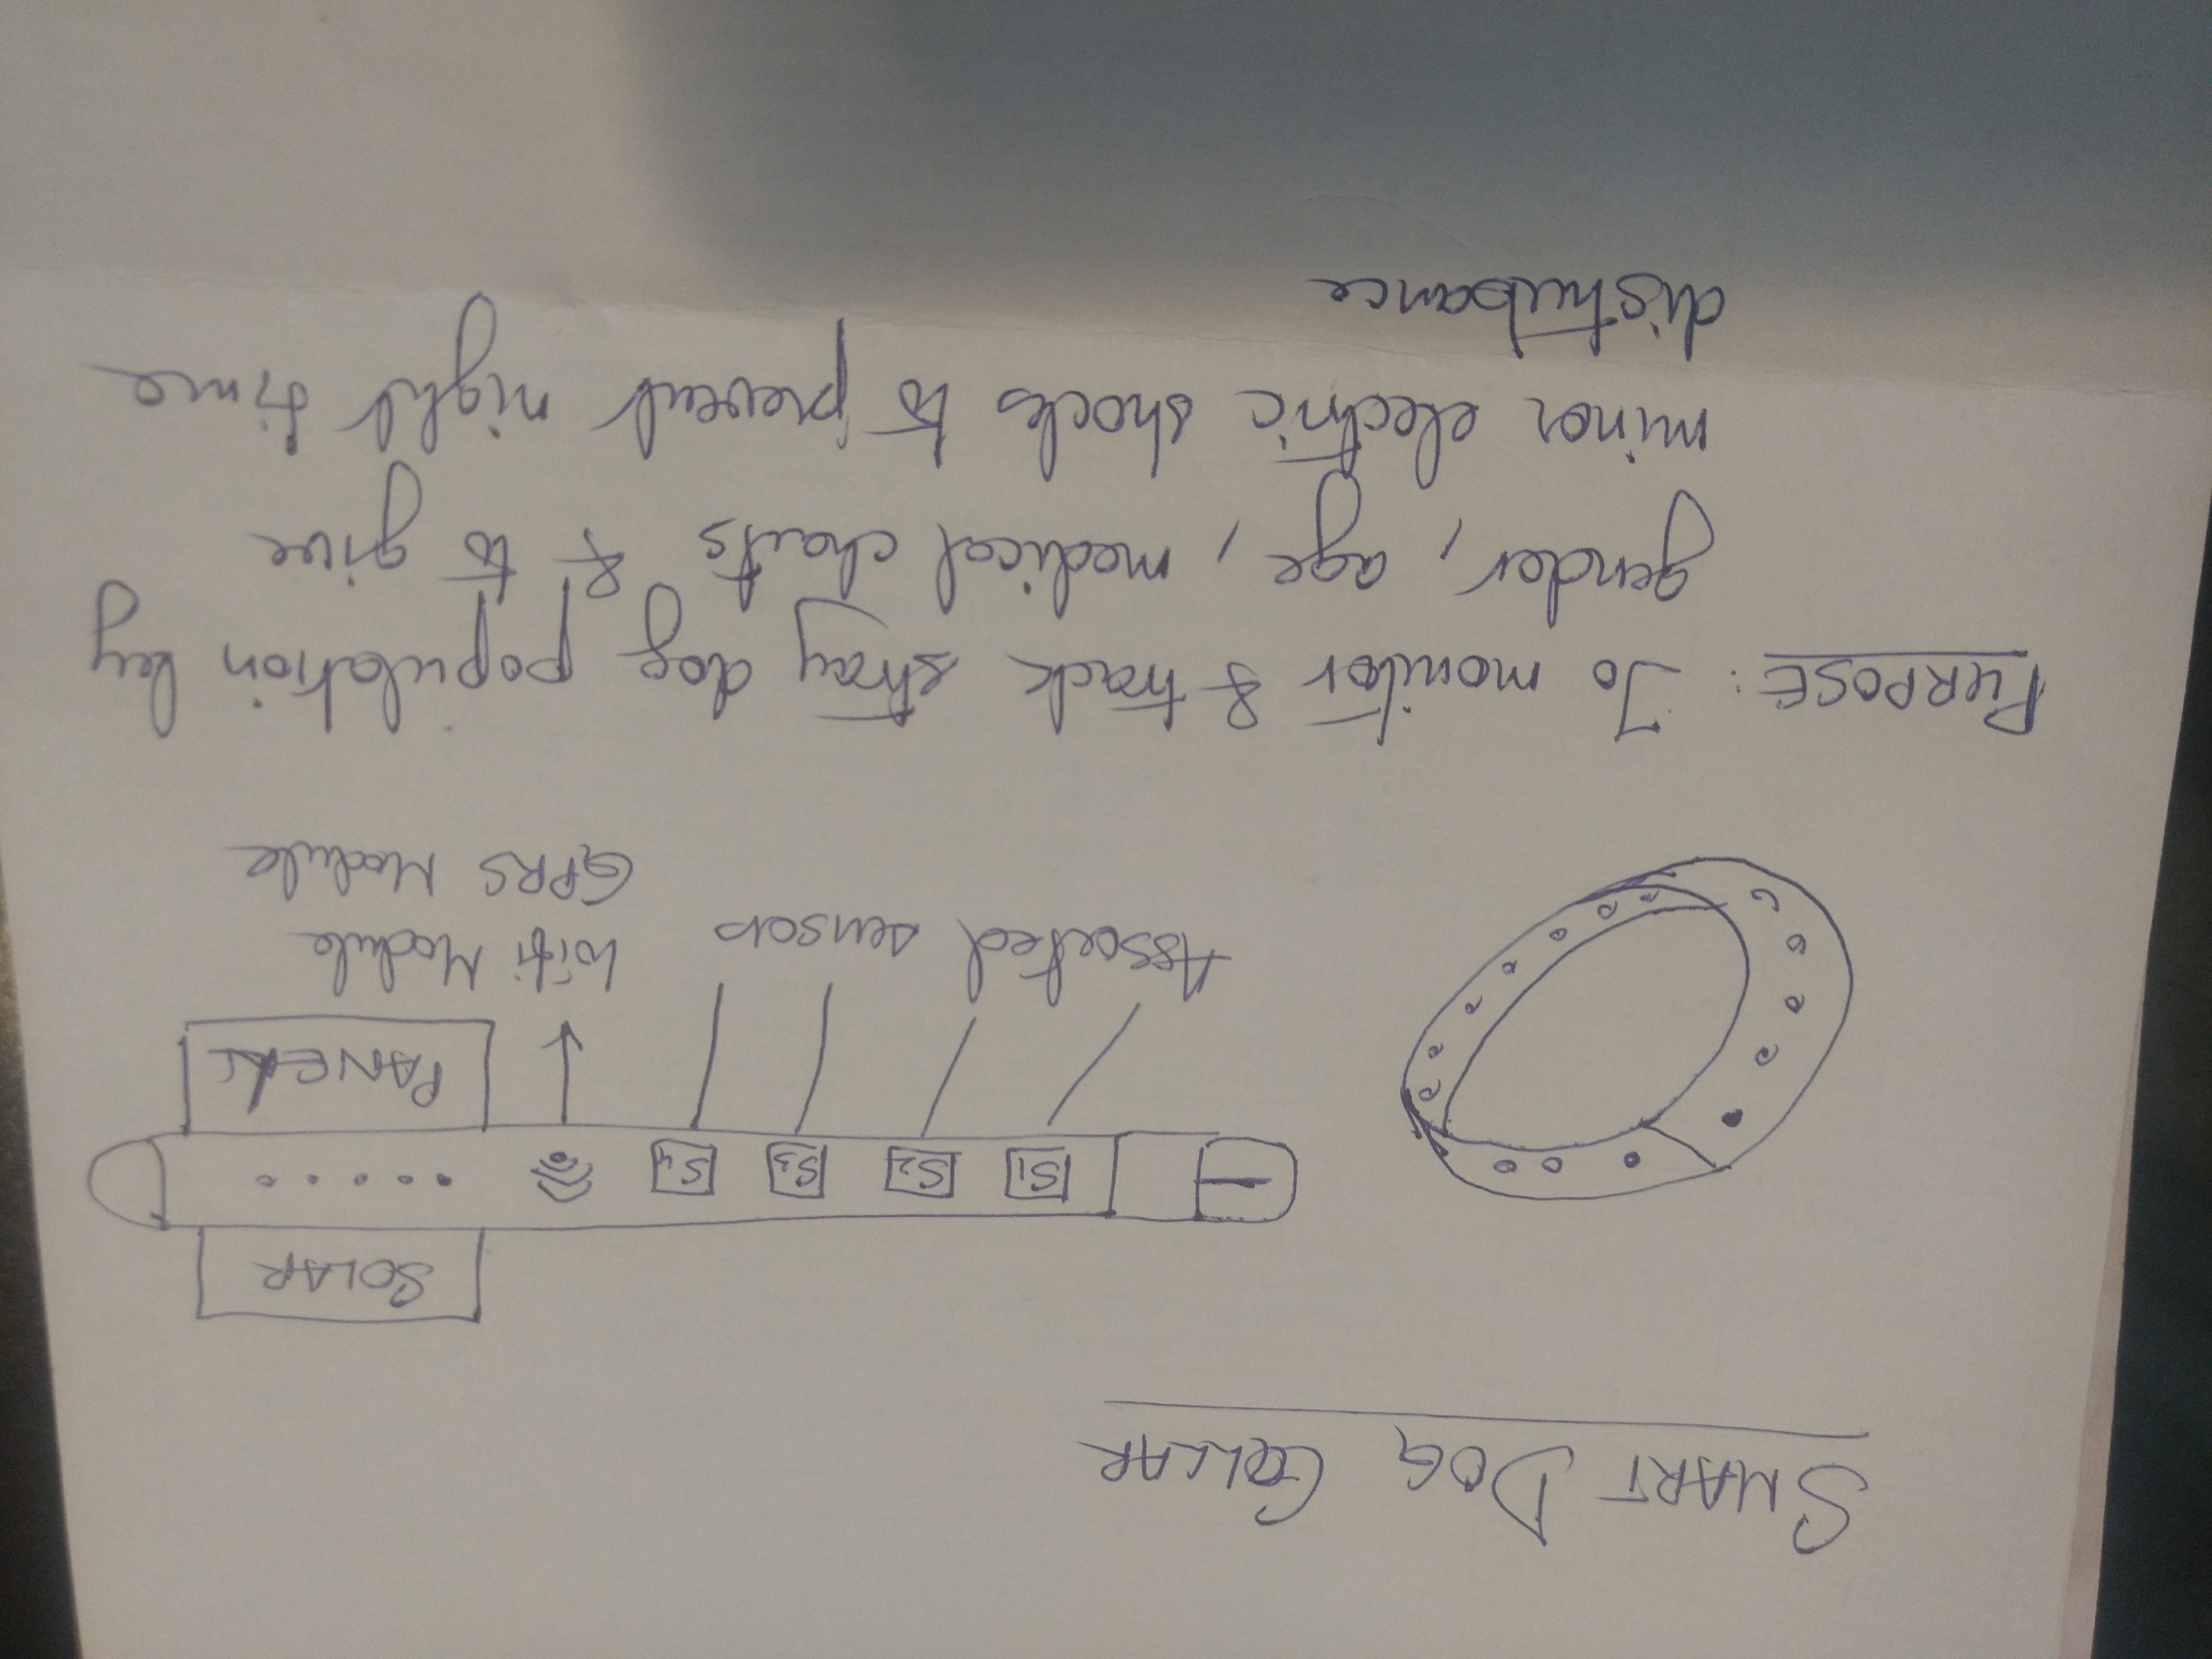 SMART DOG COLLAR
SOLAR
S1 S2 S3 S4
PANEL
Assorted sensors
Wifi Module
GPRS Module
PURPOSE: To monitor & track stray dog population by
gender, age, medical charts & to give
minor electric shocks to prevent night time
disturbance